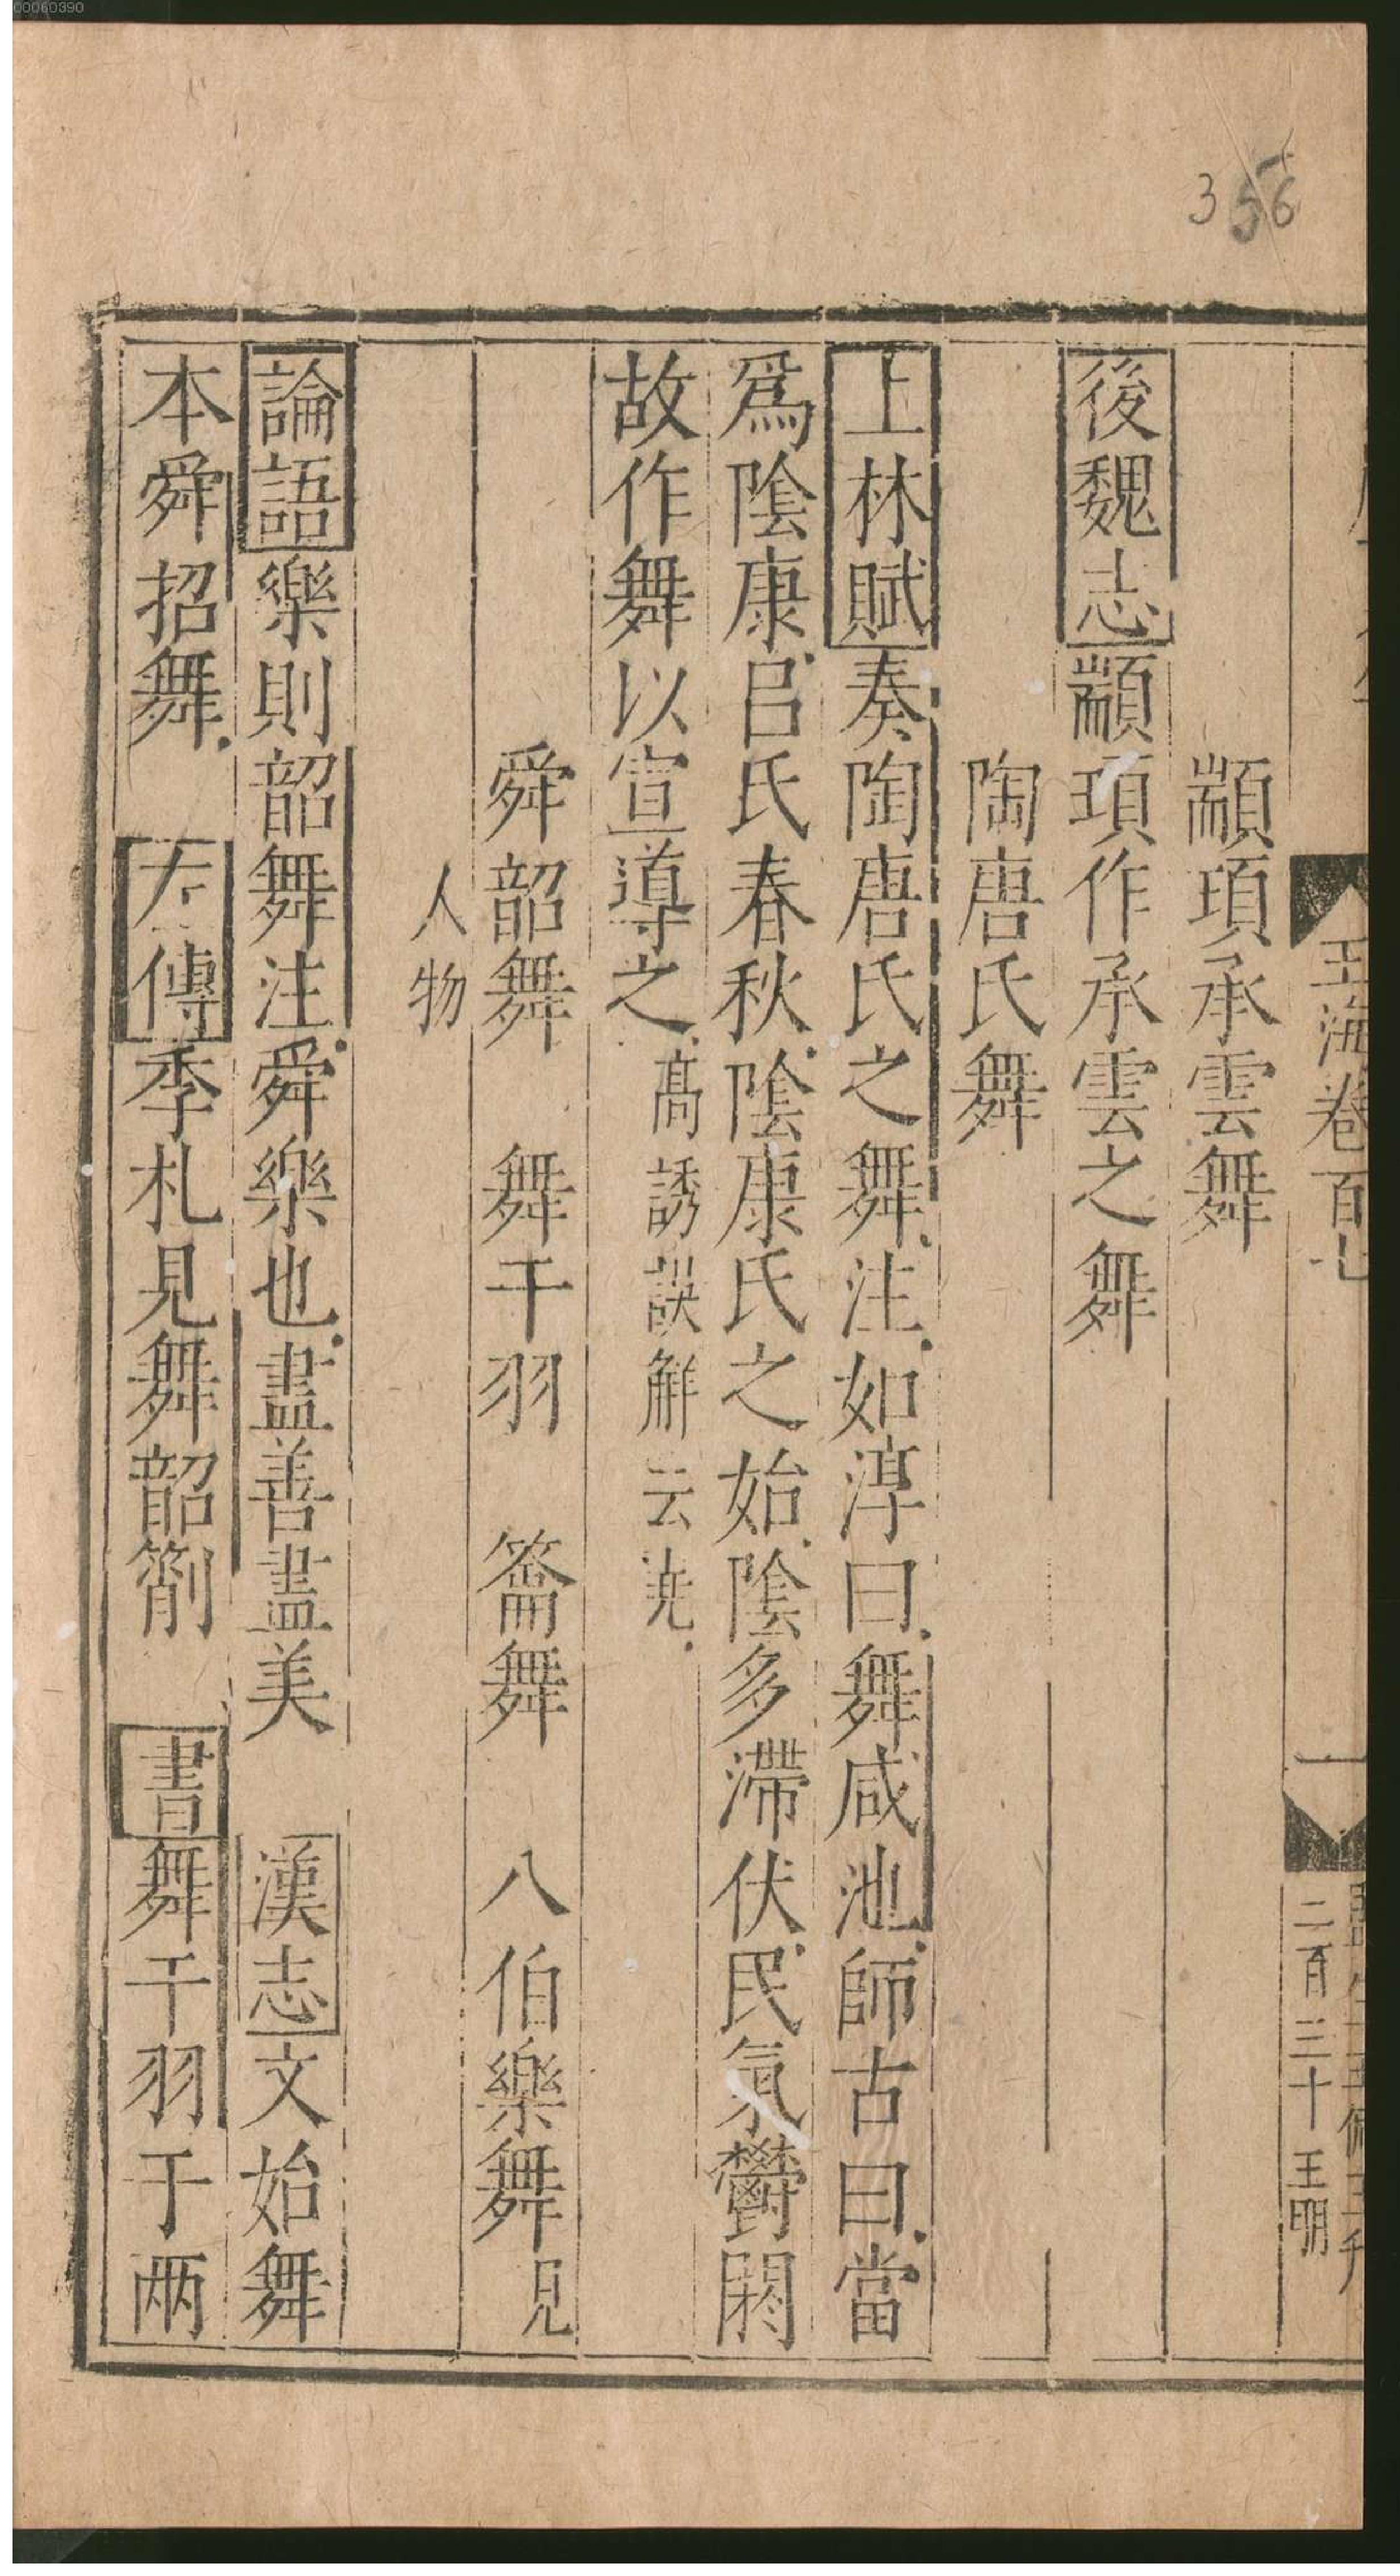 00060390
356
玉海卷百七
一
二百三十 王明
顓頊承雲舞
後魏志顓頊作承雲之舞
陶唐氏舞
上林賦奏陶唐氏之舞注如淳曰舞咸池師古曰當
爲隂康呂氏春秋隂康氏之始隂多滯伏民氣鬱閼
故作舞以宣導之高誘誤解云堯
舜韶舞 舞干羽 籥舞 八伯樂舞見
人物
論語樂則韶舞注舜樂也盡善盡美 漢志文始舞
本舜招舞 左傳季札見舞韶箾 書舞干羽于两